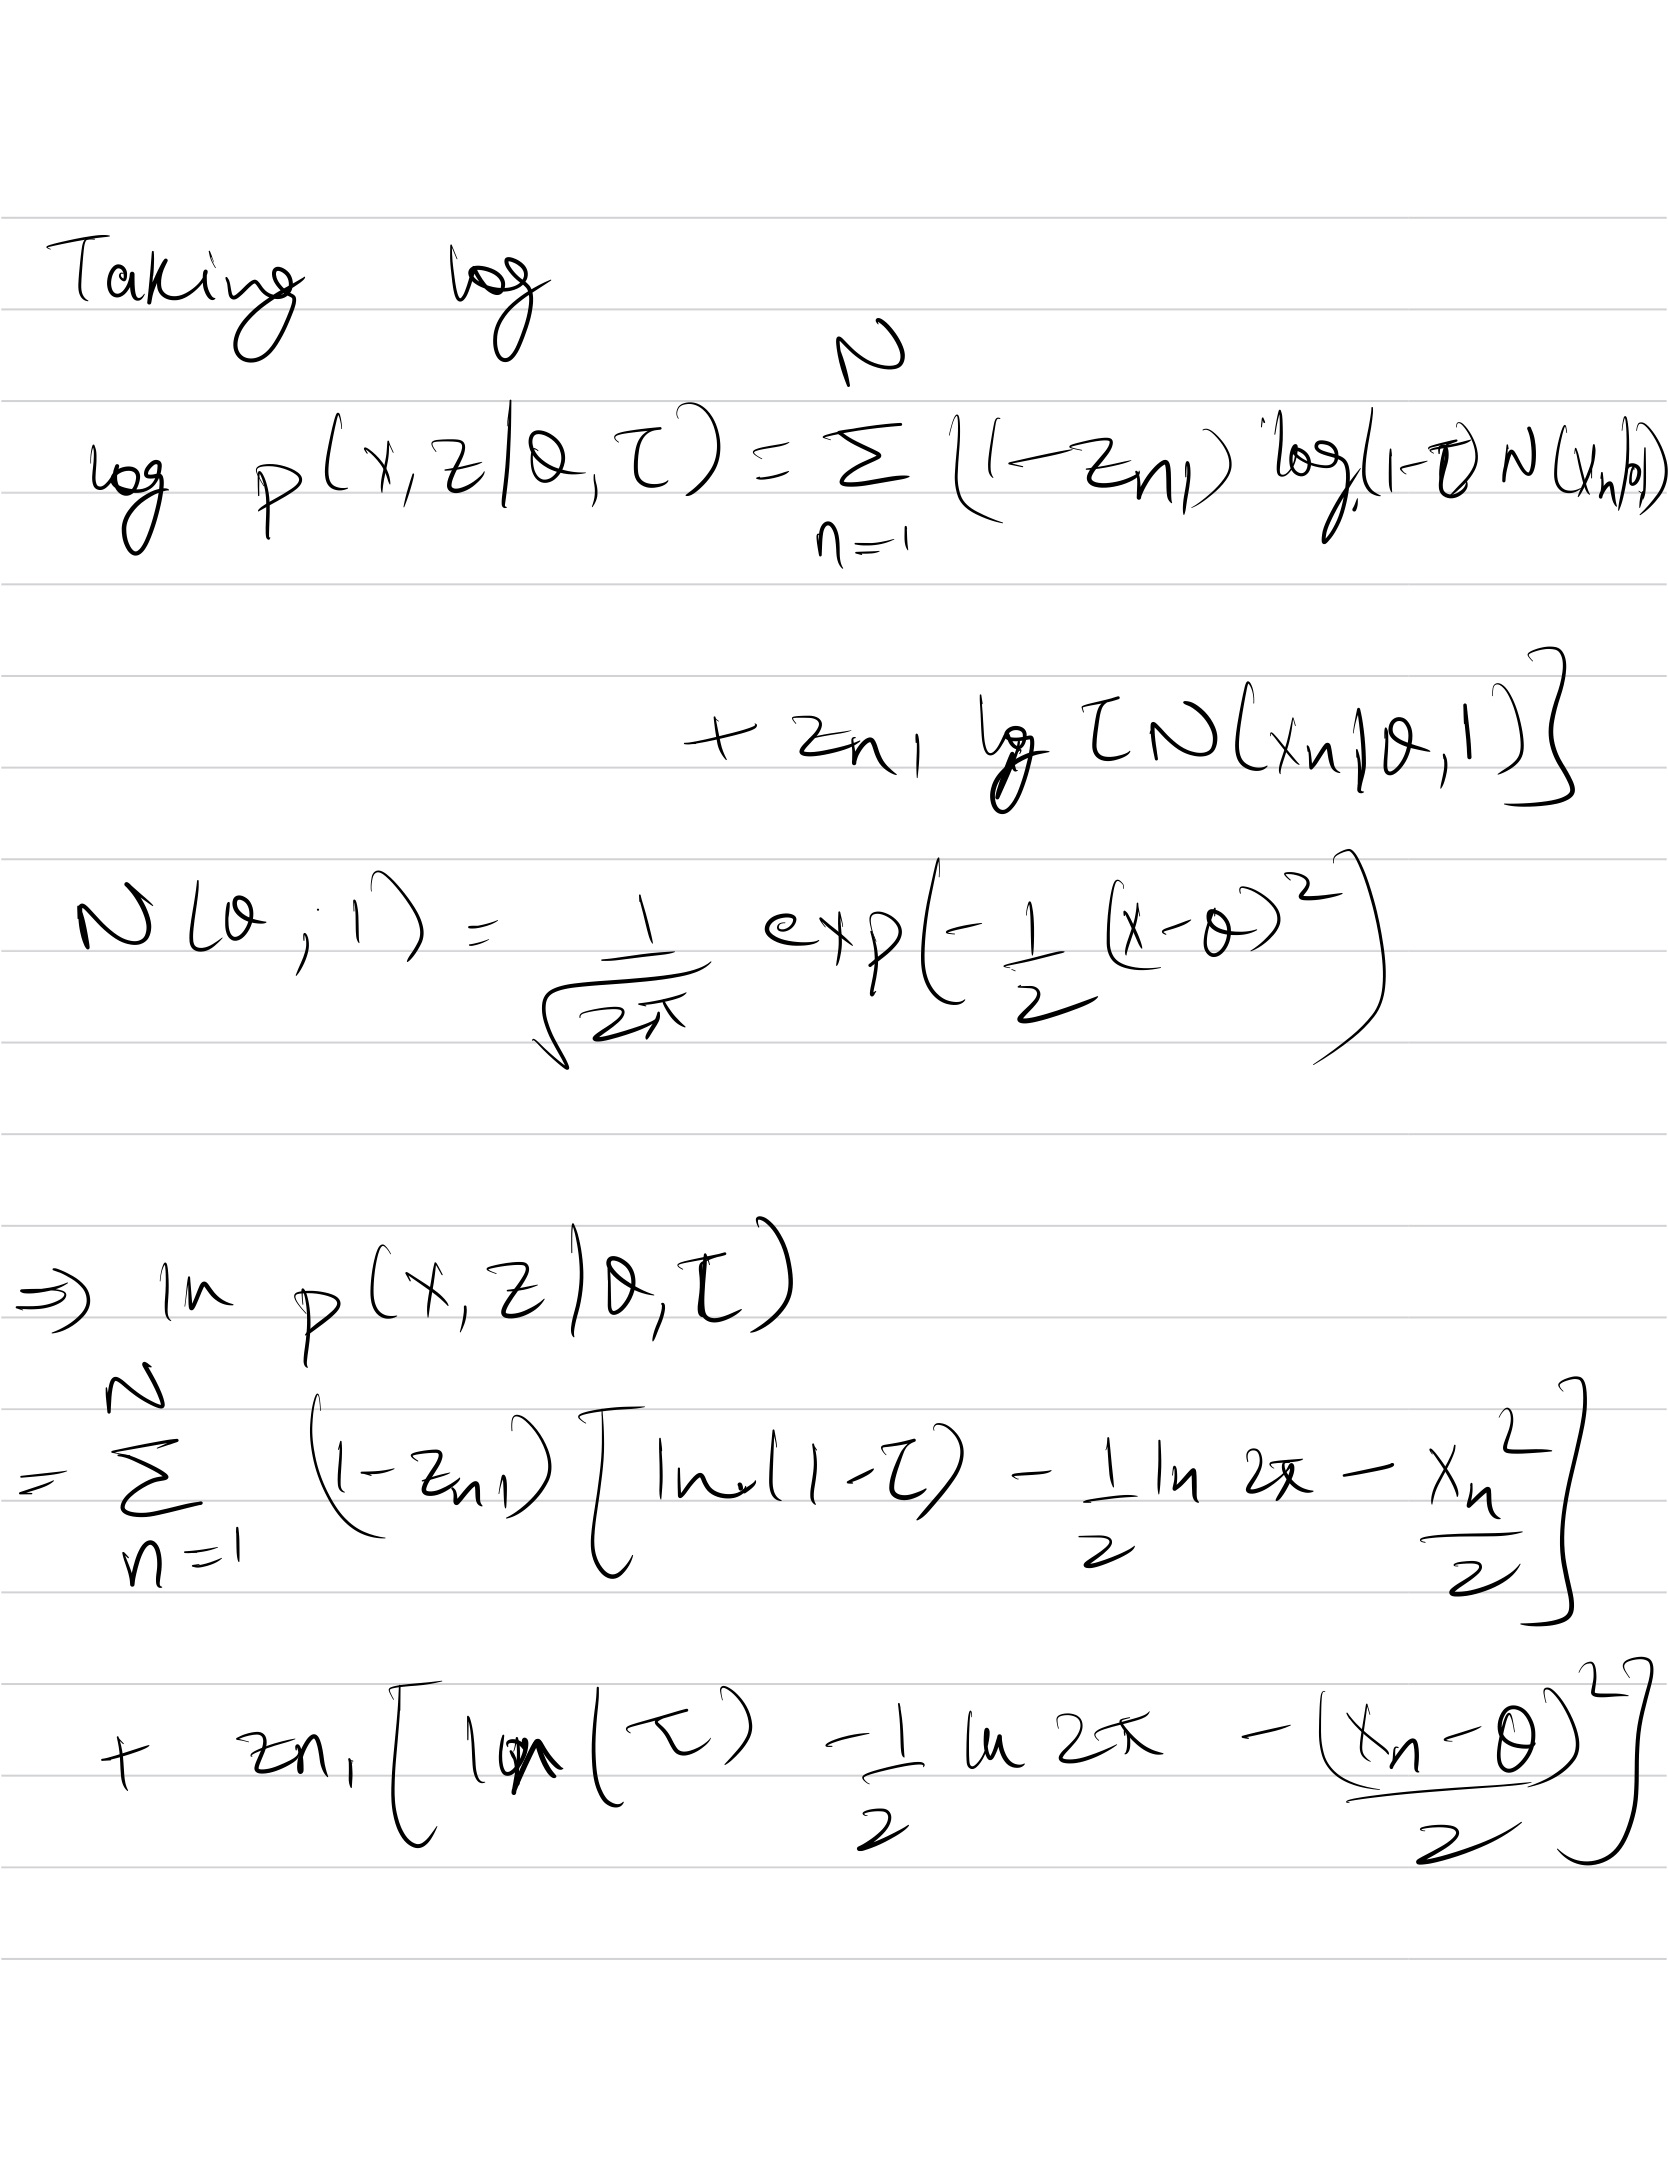 Taking log
log p(x, z|θ, τ) = Σ_{n=1}^{N} ((1-z_{n1}) log(1-τ) N(x_n|0,1)
+ z_{n1} log τ N(x_n|θ,1)]
N(θ; 1) = 1/√(2π) exp(-1/2 (x-θ)²)
⇒ ln p(x, z|θ, τ)
= Σ_{n=1}^{N} (1-z_{n1}) [ln(1-τ) - 1/2 ln 2π - x_n²/2]
+ z_{n1} [ln(τ) - 1/2 ln 2π - (x_n-θ)²/2]